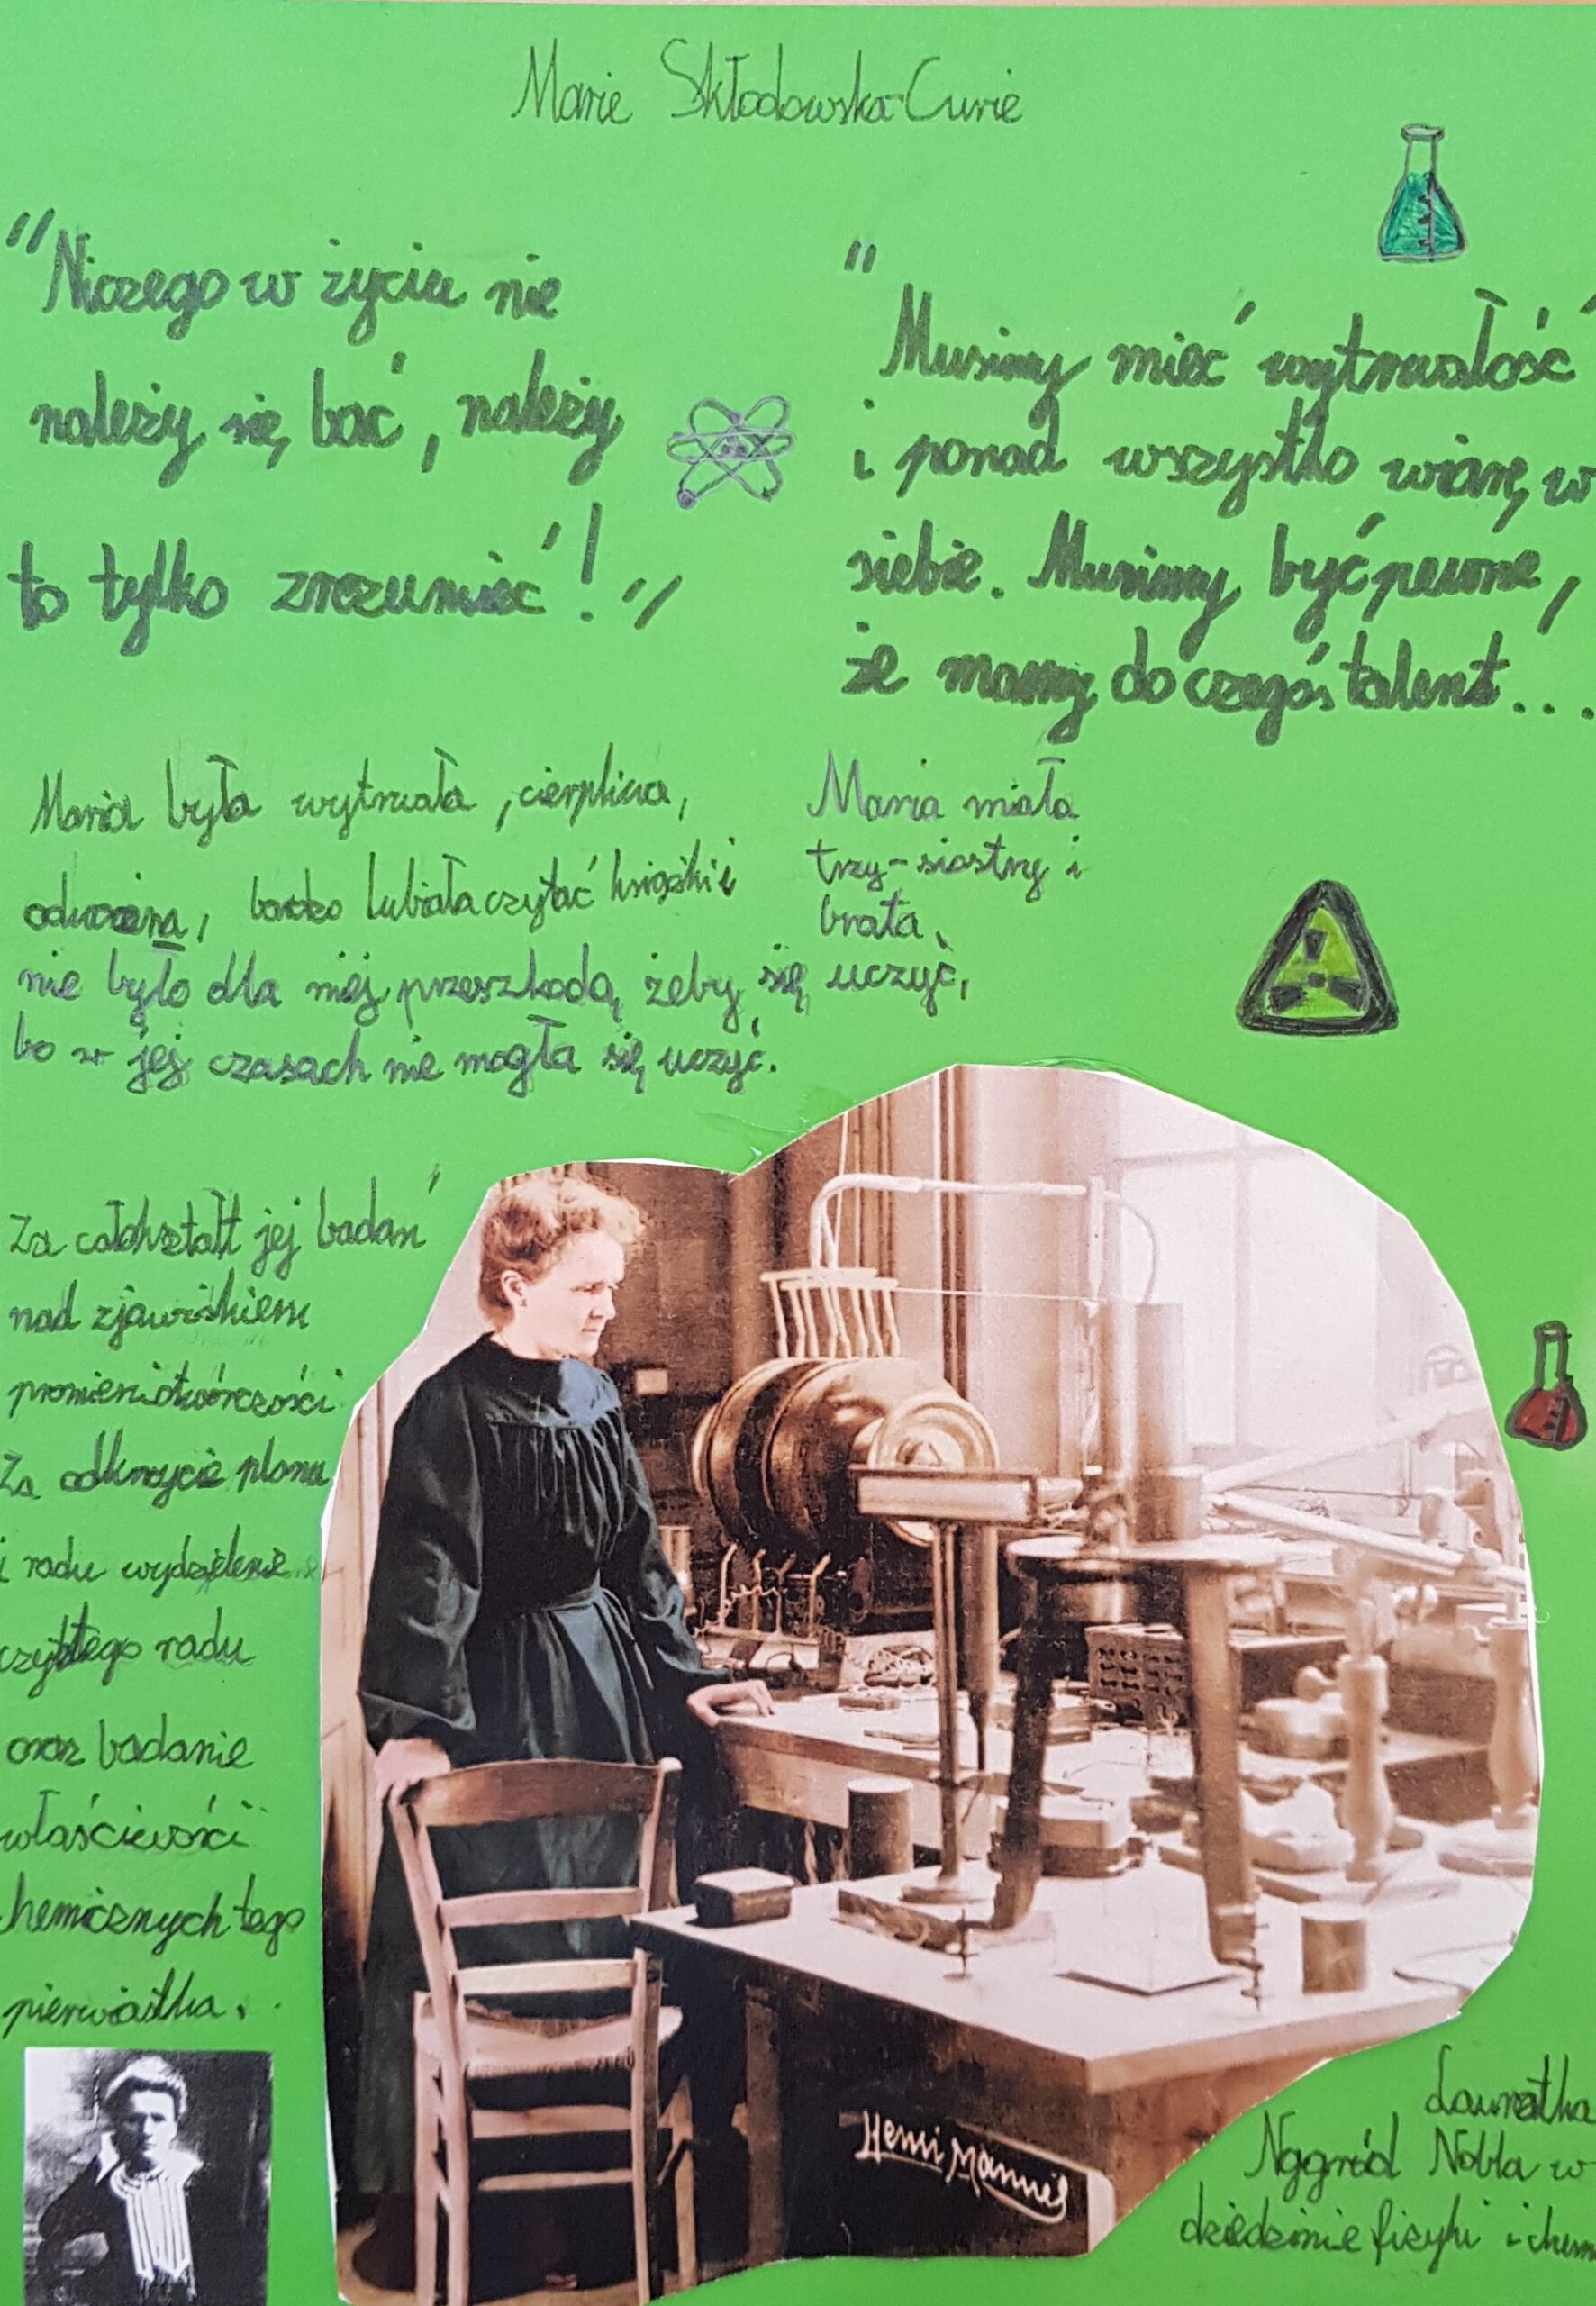 Marie Skłodowska-Curie
"Niczego w życiu nie
należy się bać, należy
to tylko zrozumieć!"
"
Musimy mieć wytrwałość
i ponad wszystko wiarę w
siebie. Musimy być pewne,
że mamy do czegoś talent...
Maria była wytrwała, cierpliwa,
odważna, bardzo lubiała czytać książki i
nie było dla niej przeszkodą, żeby się uczyć,
bo w jej czasach nie mogła się uczyć.
Maria miała
trzy-siostry i
brata.
Za całokształt jej badań
nad zjawiskiem
promieniotwórczości
Za odkrycie plonu
i radu wydzielenie
czystego radu
oraz badanie
właściwości
hemicznych tego
pierwiastka.
Henri Manuel
Lauratka
Nagród Nobla w
dziedzinie fizyki i chem